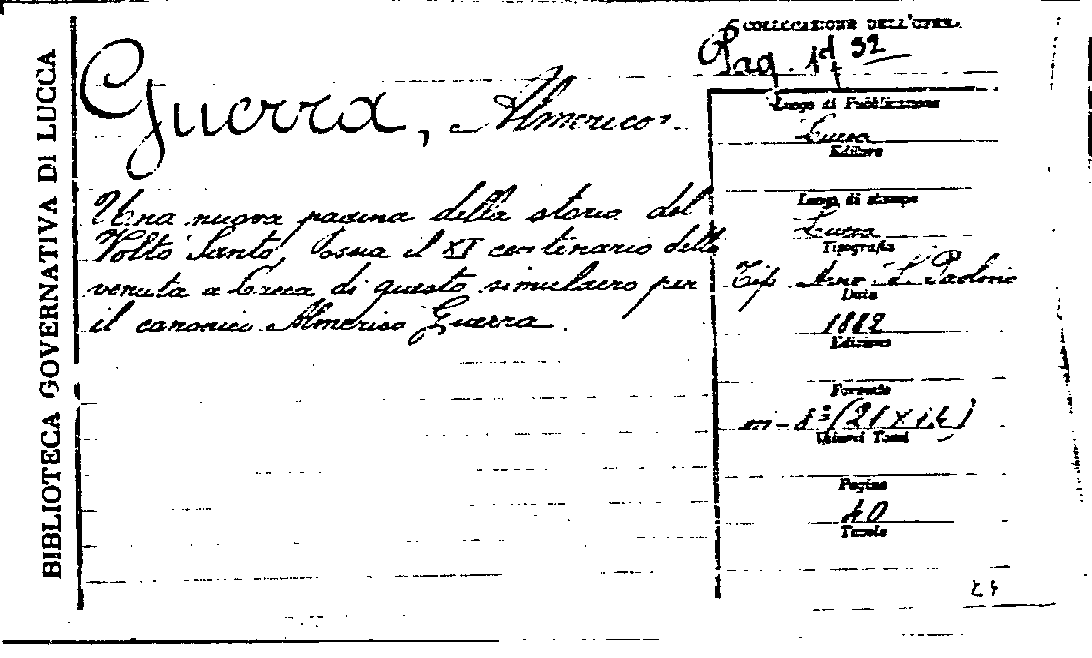 BIBLIOTECA GOVERNATIVA DI LUCCA
Guerra, Almerico.
Una nuova pagina della storia del
Volto Santo, ossia il XI centenario della
venuta a Lucca di questo simulacro per
il canonico Almerico Guerra.
COLLOCAZIONE DELL'OPERA
Luogo di Pubblicazione
Lucca
Editore
Luogo di stampa
Lucca
Tipografia
Tip. S. Paolino
Data
1882
Edizione
Formato
in-8° (21 x 14)
Numeri Tomi
Pagine
40
Tavole